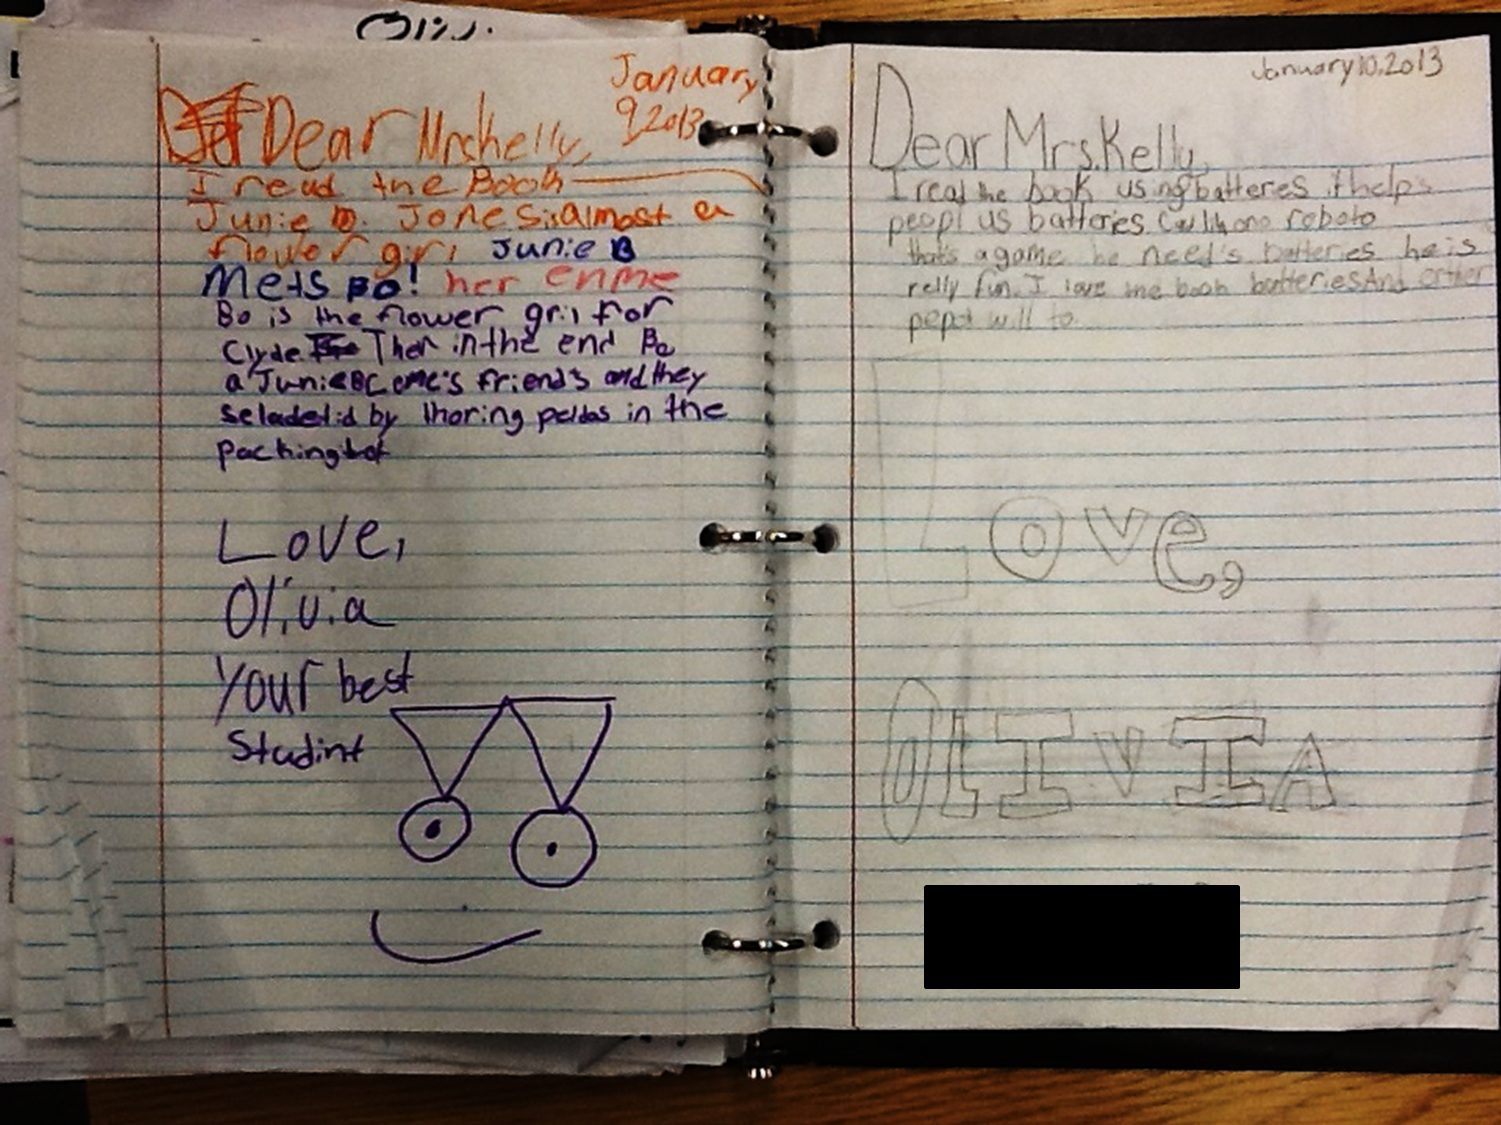 January
9 2013
Dear Mrs kelly,
I read the Book
Junie b. Jones is almost a
flower girl Junie B
Mets Bo! her enme
Bo is the flower gril for
Clyde Then in the end Bo
a Junie BC eme's friends and they
by thoring in the
packing
Love,
Olivia
Your best
Studint
January 10, 2013
Dear Mrs. Kelly,
I read the book using batteres it helps
peopl us batteries roboto
that's a game he need's batteries he is
relly fun. I love the book batteries And other
will to.
Love,
OLIVIA